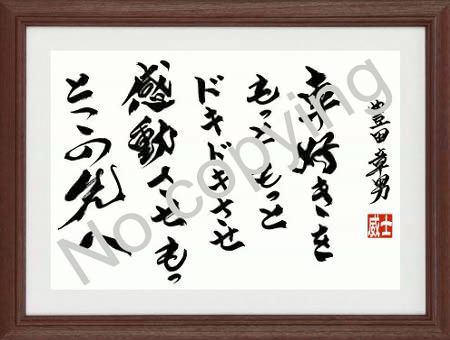 豊田章男
走り好きを
もっともっと
ドキドキさせ
感動させもっ
とその先へ
No copying